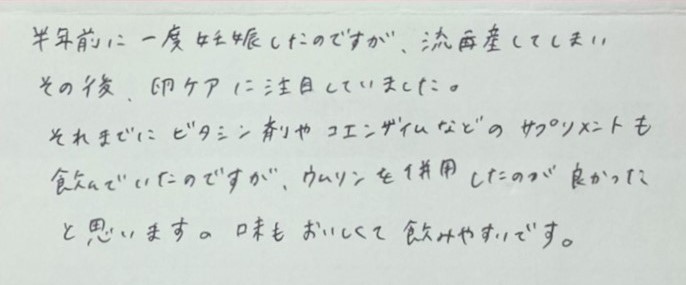 半年前に一度妊娠したのですが、流産してしまい
その後、卵ケアに注目していました。
それまでにビタミン剤やコエンザイムなどのサプリメントも
飲んでいたのですが、ウムリンを併用したのが良かった
と思います。味もおいしくて飲みやすいです。